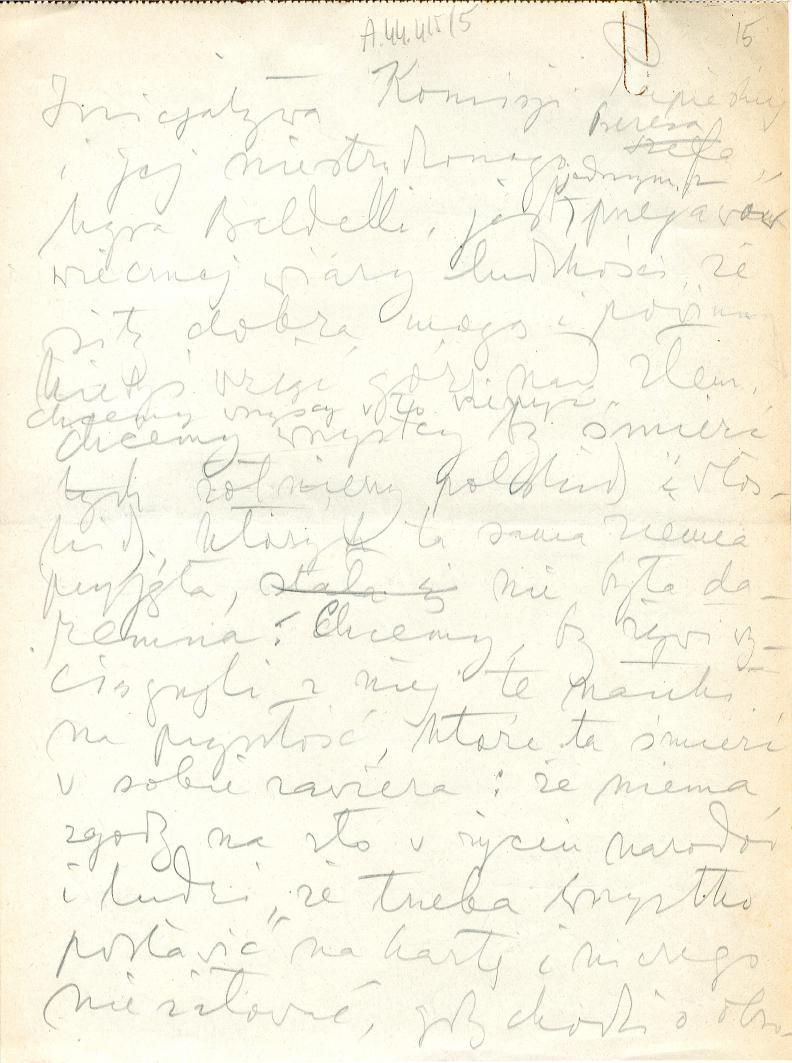 A.44.415/5
15
Inicjatywa Komisji Papieskiej
i jej niestrudzonego prezesa szefa,
Mgra Baldelli, jest jednym z przejawów
wiecznej wiary ludzkości, że
siły dobra mogą i powinny
kiedyś wziąć górę nad złem.
chcemy wszyscy w to wierzyć.
Chcemy wszyscy by śmierć
tych żołnierzy polskich i włos-
kich, których ta sama ziemia
przyjęła, stała się nie była da-
remna. Chcemy, by żywi wy-
ciągnęli z niej te nauki
na przyszłość, które ta śmierć
w sobie zawiera: że niema
zgody na zło w życiu narodów
i ludzi, że trzeba wszystko
postawić na kartę i niczego
nie żałować, gdy chodzi o obro-